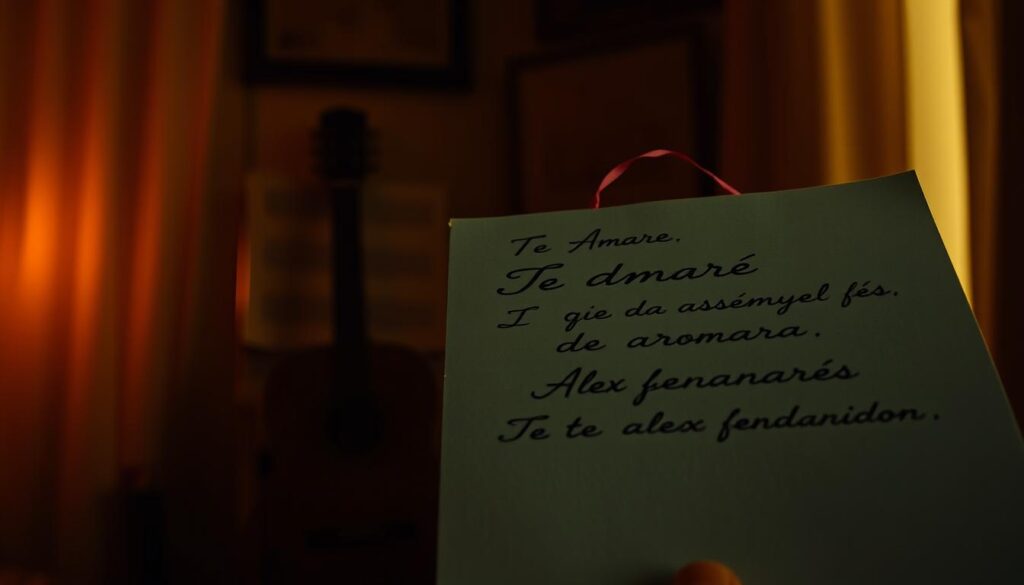 Te Amare.
Te dmaré
I gie da assémyel fés.
de aromara.
Alex fenanarés
Te te alex fendanidon.